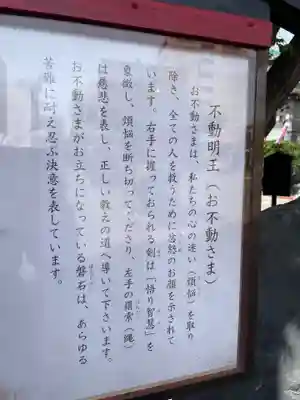 不動明王(お不動さま)
お不動さまは、私たちの心の迷い(煩悩)を取り
除き、全ての人を救うために忿怒のお顔を示されて
います。右手に握っておられる剣は「悟り智慧」を
象徴し、煩悩を断ち切って下さり、左手の羂索(縄)
は慈悲を表し、正しい教えの道へ導いて下さいます。
お不動さまがお立ちになっている磐石は、あらゆる
苦難に耐え忍ぶ決意を表しています。